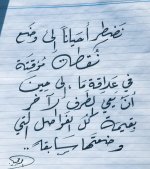 نضطر أحياناً إلى وضع
نقطة مؤقتة
في علاقة ما إلى حين
أن يعي الطرف الآخر
بقيمة كل الفواصل التي
وضعتها سابقاً..